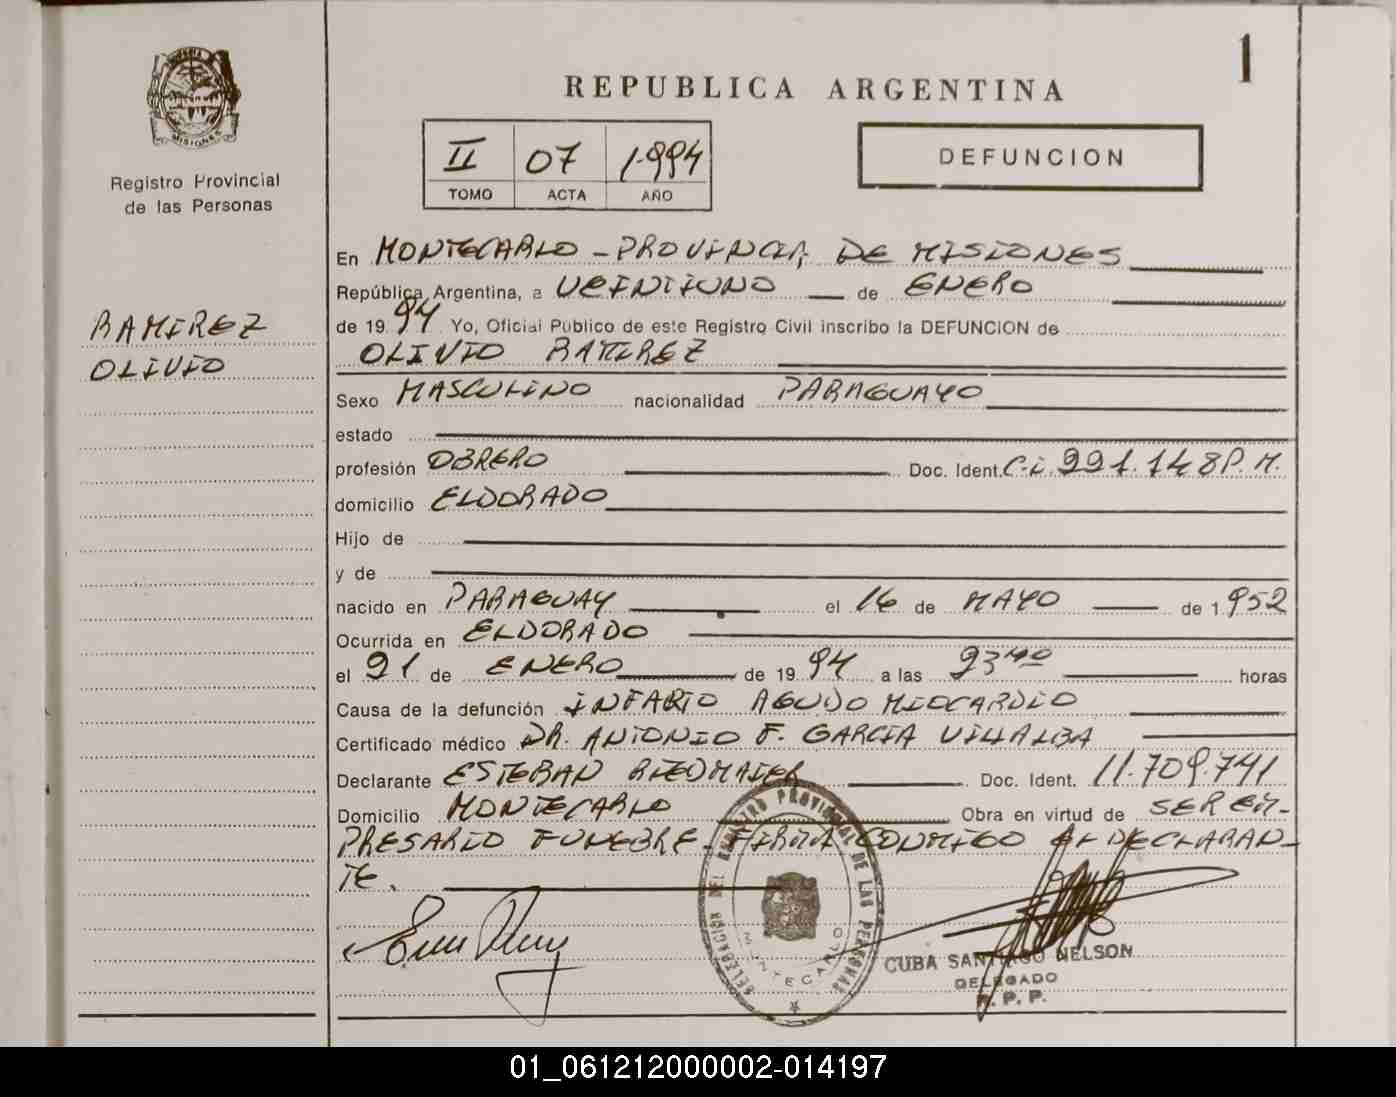 1
REPUBLICA ARGENTINA
MISIONES
Registro Provincial
de las Personas
II 07 1994
TOMO ACTA AÑO
DEFUNCION
RAMIREZ
OLIVIO
En MONTECARLO - PROVINCIA DE MISIONES
República Argentina, a VEINTIUNO de ENERO
de 19 94 Yo, Oficial Público de este Registro Civil inscribo la DEFUNCION de
OLIVIO RAMIREZ
Sexo MASCULINO nacionalidad PARAGUAYO
estado
profesión OBRERO Doc. Ident. C.I. 991.148 P.M.
domicilio ELDORADO
Hijo de
y de
nacido en PARAGUAY el 16 de MAYO de 1.952
Ocurrida en ELDORADO
el 21 de ENERO de 19 94 a las 23 40 horas
Causa de la defunción INFARTO AGUDO MIOCARDIO
Certificado médico DR. ANTONIO F. GARCIA VILLALBA
Declarante ESTEBAN RIEDMAIER Doc. Ident. 11.709.741
Domicilio MONTECARLO Obra en virtud de SER EM-
PRESARIO FUNEBRE - FIRMA CONMIGO EL DECLARAN-
TE.
DELEGACION DEL REGISTRO PROVINCIAL DE LAS PERSONAS
MONTECARLO
CUBA SANTIAGO NELSON
DELEGADO
R. P. P.
01_061212000002-014197